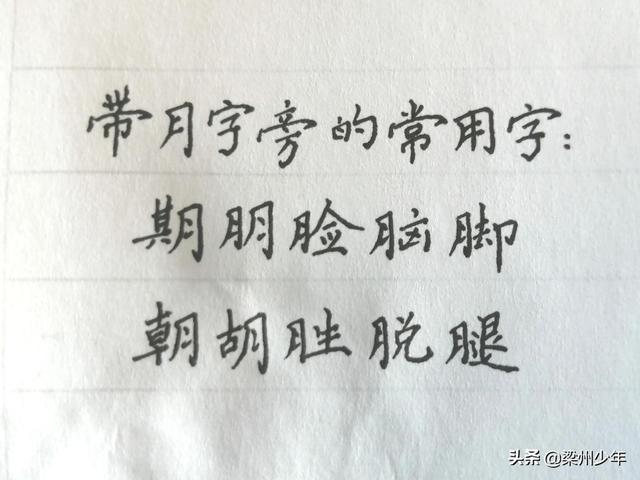 带月字旁的常用字：
期朋脸脑脚
朝胡胜脱腿
头条 @梁州少年